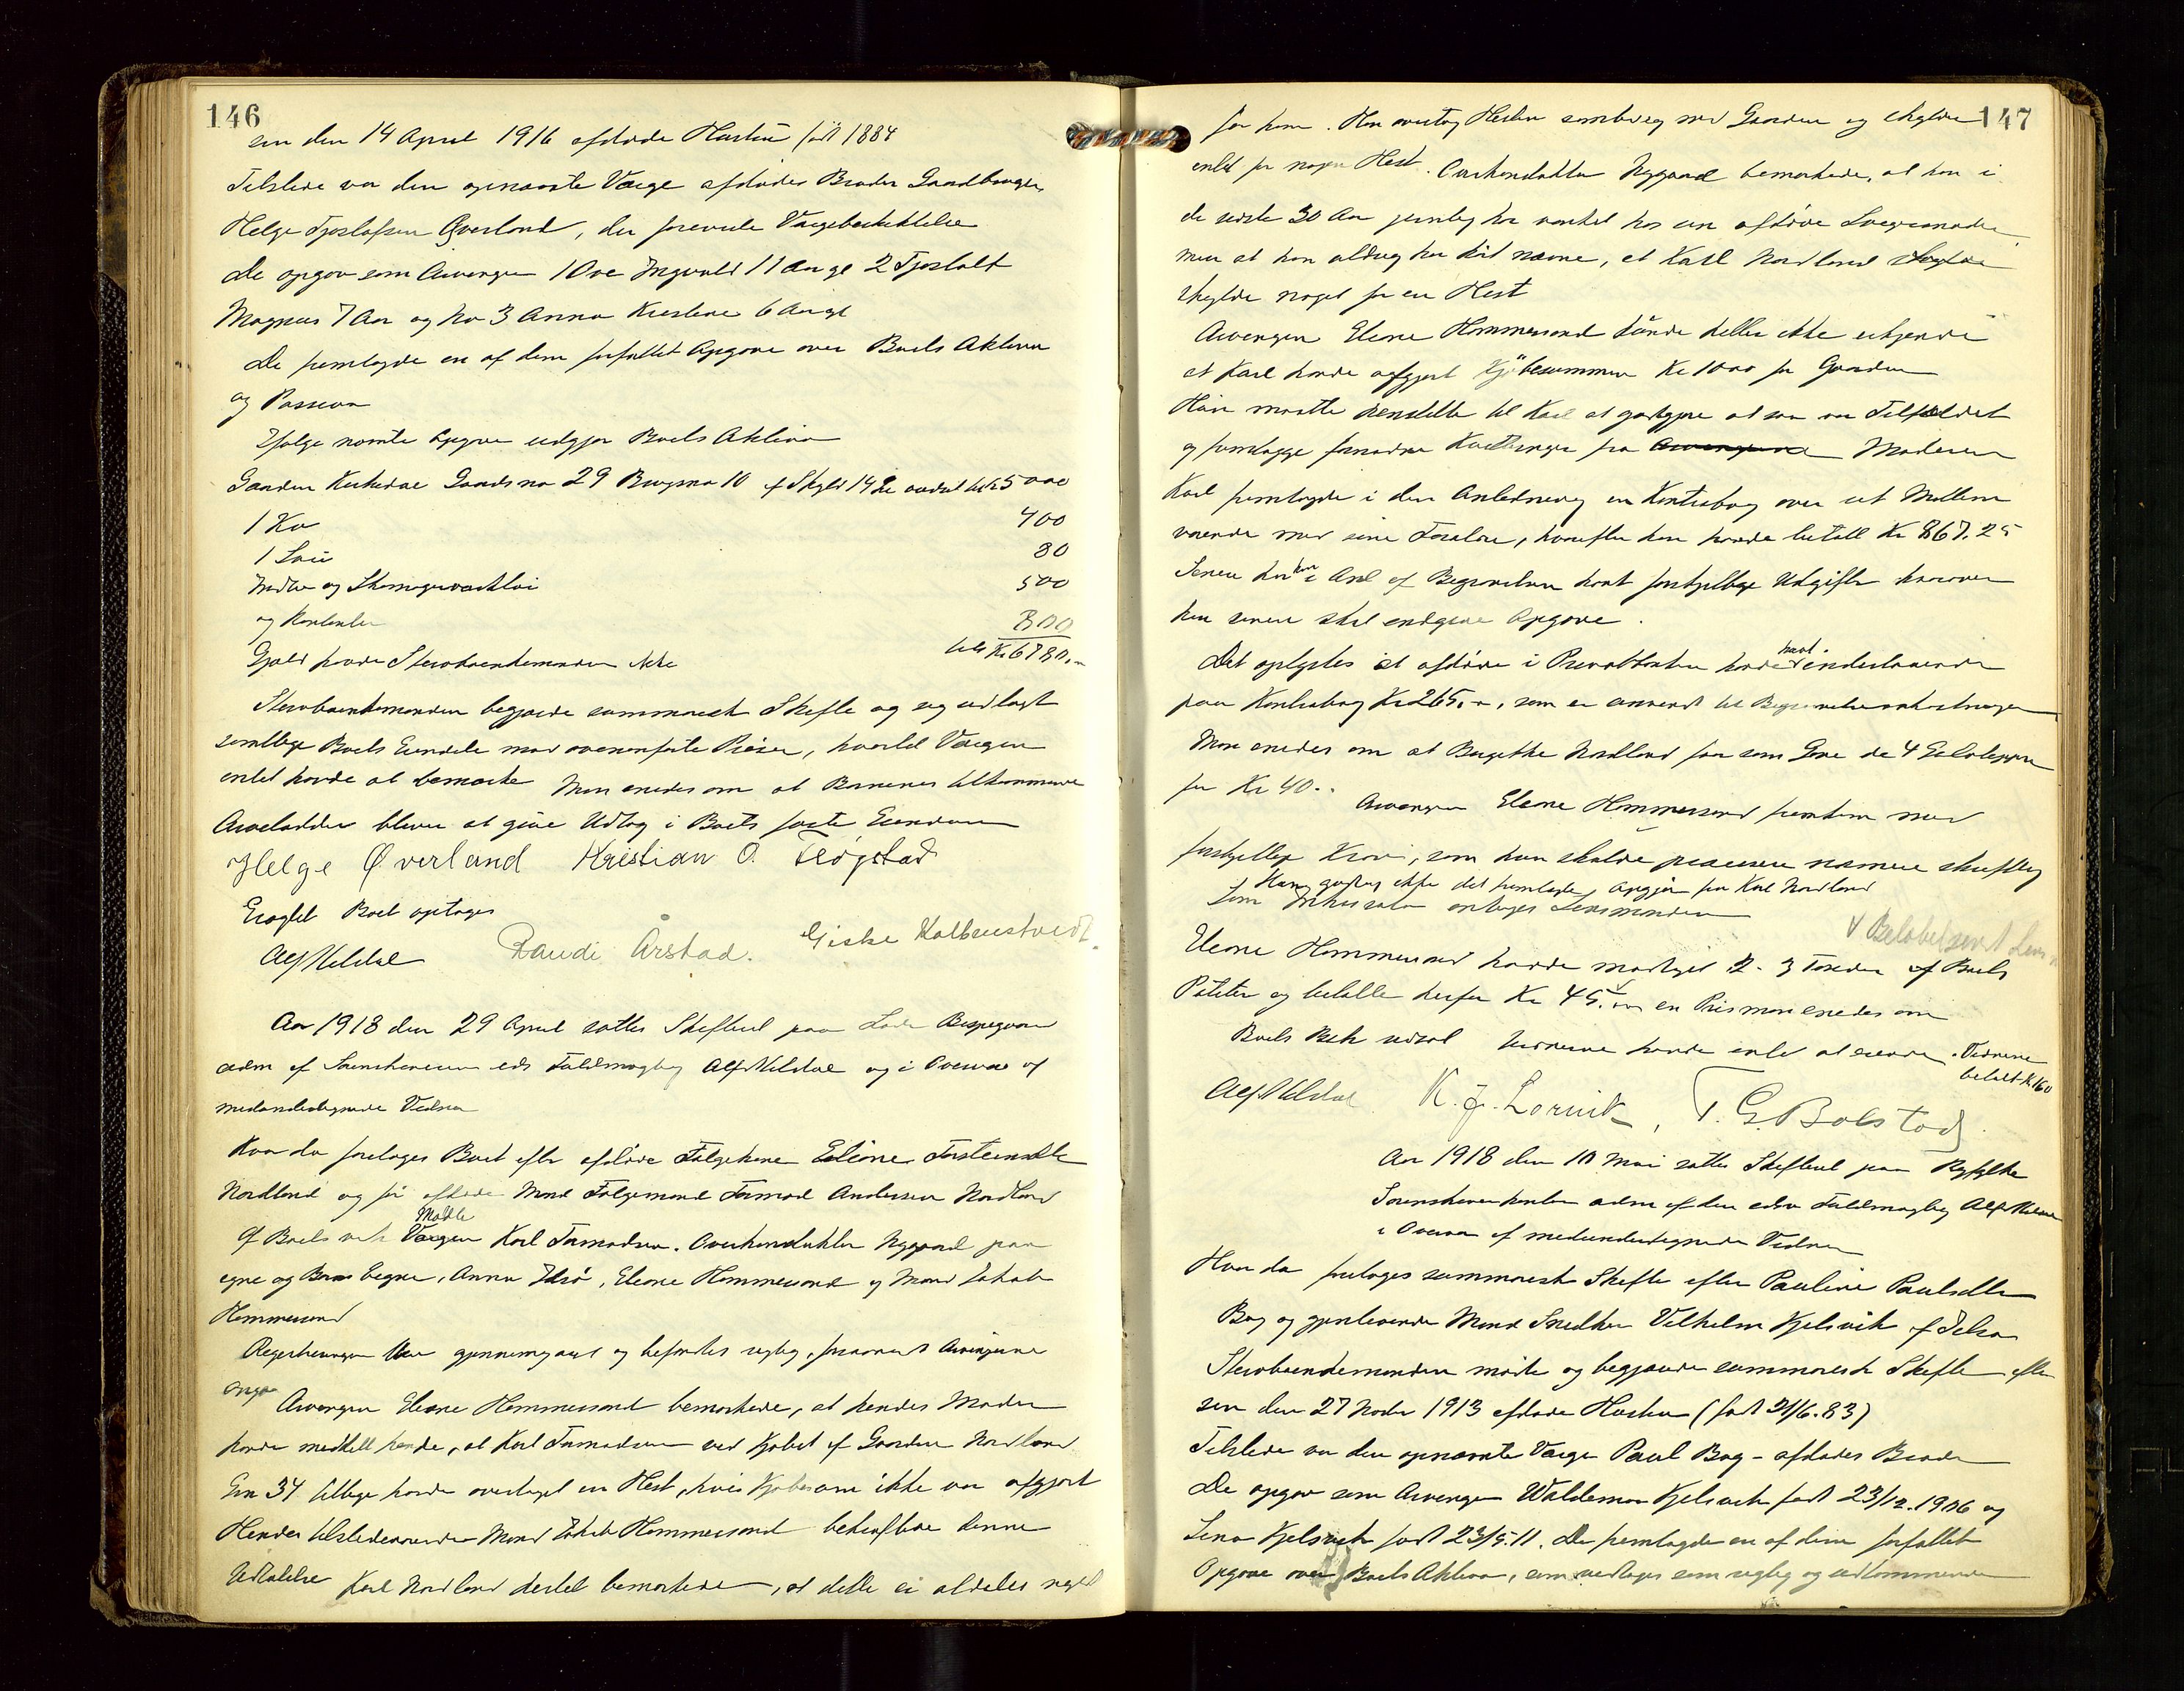 146
sin den 14 April 1916 afdøde Hustru født 1884
Tilstede var den opnævnte Værge afdødes Broder Gaardbruger
Helge Øverland, der foreviste Værgebeskikkelse
De opgav som Arvinger 1 Ove Ingvald 11 Aar gl 2 Tjostolf
Magnus 7 Aar og No 3 Anna Kristine 6 Aar gl
De fremlagde en af dem forfattet Opgave over Boets Aktiva
og Passiva
Ifølge nævnte Opgave udgjør Boets Aktiva
Gaarden Gaardsno 29 Brugsno 10 af Skyld til Kr 5000
1 Ko 400
1 80
Indbo og 500
og Kontanter 800
Gjæld havde Stervboenkemanden ikke tils Kr 6780.-
Stervboenkemanden begjærede summarisk Skifte og sig udlagt
samtlige Boets Eiendele mod ovenanførte Priser, hvortil Værgen
intet havde at bemærke Man enedes om at Børnenes tilkommende
Arvelodder bliver at give Udlæg i Boets faste Eiendom
Helge Øverland Kristian O. Frøystad
Boet optages
Alf Kildal Raudi Årstad. Giske Kolbeinstvedt.
Aar 1918 den 29 April sattes Skifteret paa
adm af Sorenskriveren eds Fuldmægtig Alf Kildal og i Overvær af
medundertegnede Vidner
Hvor da foretoges Boet efter afdøde Følgekone Elene Torsteinsdtr
Nordland og før afdøde Mand Følgemand Tormod Andersen Nordland
Af Boets vedk mødte Værgen Karl Tormodsen. Overkonduktør Nygaard paa
egne og Børns Vegne, Anna, Elene Hommersand og Mand Jakob
Hommersand
Registreringen blev gjennemgaaet og befandtes rigtig, forsaavidt Arvingerne
angaar
Arvingen Elene Hommersand bemærkede, at hendes Moder
havde meddelt hende, at Karl Tormodsen ved Kjøbet af Gaarden Nordland
Gno 34 tillige havde overtaget en Hest, hvis Kjøbesum ikke var afgjort
Hendes tilstedeværende Mand Jakob Hommersand bekræftede denne
Udtalelse Karl Nordland dertil bemærkede, at dette er aldeles nyt
147
for ham. Han overtog Hesten samtidig med Gaarden og skylder
intet for nogen Hest. Overkonduktør Nygaard bemærkede, at han i
de sidste 30 Aar jevnlig har vanket hos sin afdøde Svigermoder
men at hun aldrig har hørt nævne, at Karl Nordland skyldte
skylde noget for en Hest
Arvingen Elene Hommersand kunde heller ikke erkjende
at Karl havde afgjort Kjøbesummen Kr 1000 for Gaarden
Hun maatte henstille til Karl at godtgjøre at saa var Tilfældet
og fremlægge fornødne Kvitteringer fra Arvingerne Moderen
Karl fremlagde i den Anledning en Kontrabog over sit Mellem
værende med sine Forældre, hvorefter han havde betalt Kr 867.25
Senere har han i Anl af Begravelsen havt forskjellige Udgifter hvorover
han senere skal indgive Opgave.
Det oplystes at afdøde i Privatbanken havde havt indestaaende
paa Kontrabog Kr 265.-, som er anvendt til Begravelsesomkostninger
Man enedes om at Birgitte Nordland faar som Gave de 4 Gulvtepper
for Kr 40.-
Arvingen Elene Hommersand fremkom med
forskjellige Krav, som hun skulde præcisere nærmere skriftlig
Hun godtog ikke det fremlagte Opgjør fra Karl Nordland
Som Inkassator antages Lensmanden
V Beløbet sendt Lens
Elene Hommersand havde modtaget 2-3 Tønder af Boets
Poteter og betalte herfor Kr 45.- en Pris man enedes om
Boets Beh udsat Vidnerne havde intet at erindre. Vidnerne
betalt Kr 1.60
Alf Kildal K. J. Lervik, T. G. Bolstad.
Aar 1918 den 10 Mai sattes Skifteret paa Ryfylke
Sorenskriverkontor adm af den edsv Fuldmægtig Alf Kildal
i Overvær af medundertegnede Vidner
Hvor da foretoges summarisk Skifte efter Pauline Paulsdtr
Bog og gjenlevende Mand Snedker Vilhelm Kjelsvik af Jelsa
Stervboenkemanden mødte og begjærede summarisk Skifte efter
sin den 27 Novbr 1913 afdøde Hustru (født 21/6.83)
Tilstede var den opnævnte Værge Paul Bog - afdødes Broder
De opgav som Arvinger Waldemar Kjelsvik født 23/12.1906 og
Lena Kjelsvik født 23/5.11. De fremlagde en af dem forfattet
Opgave over Boets Aktiva, som vedtages som rigtig og udtømmende